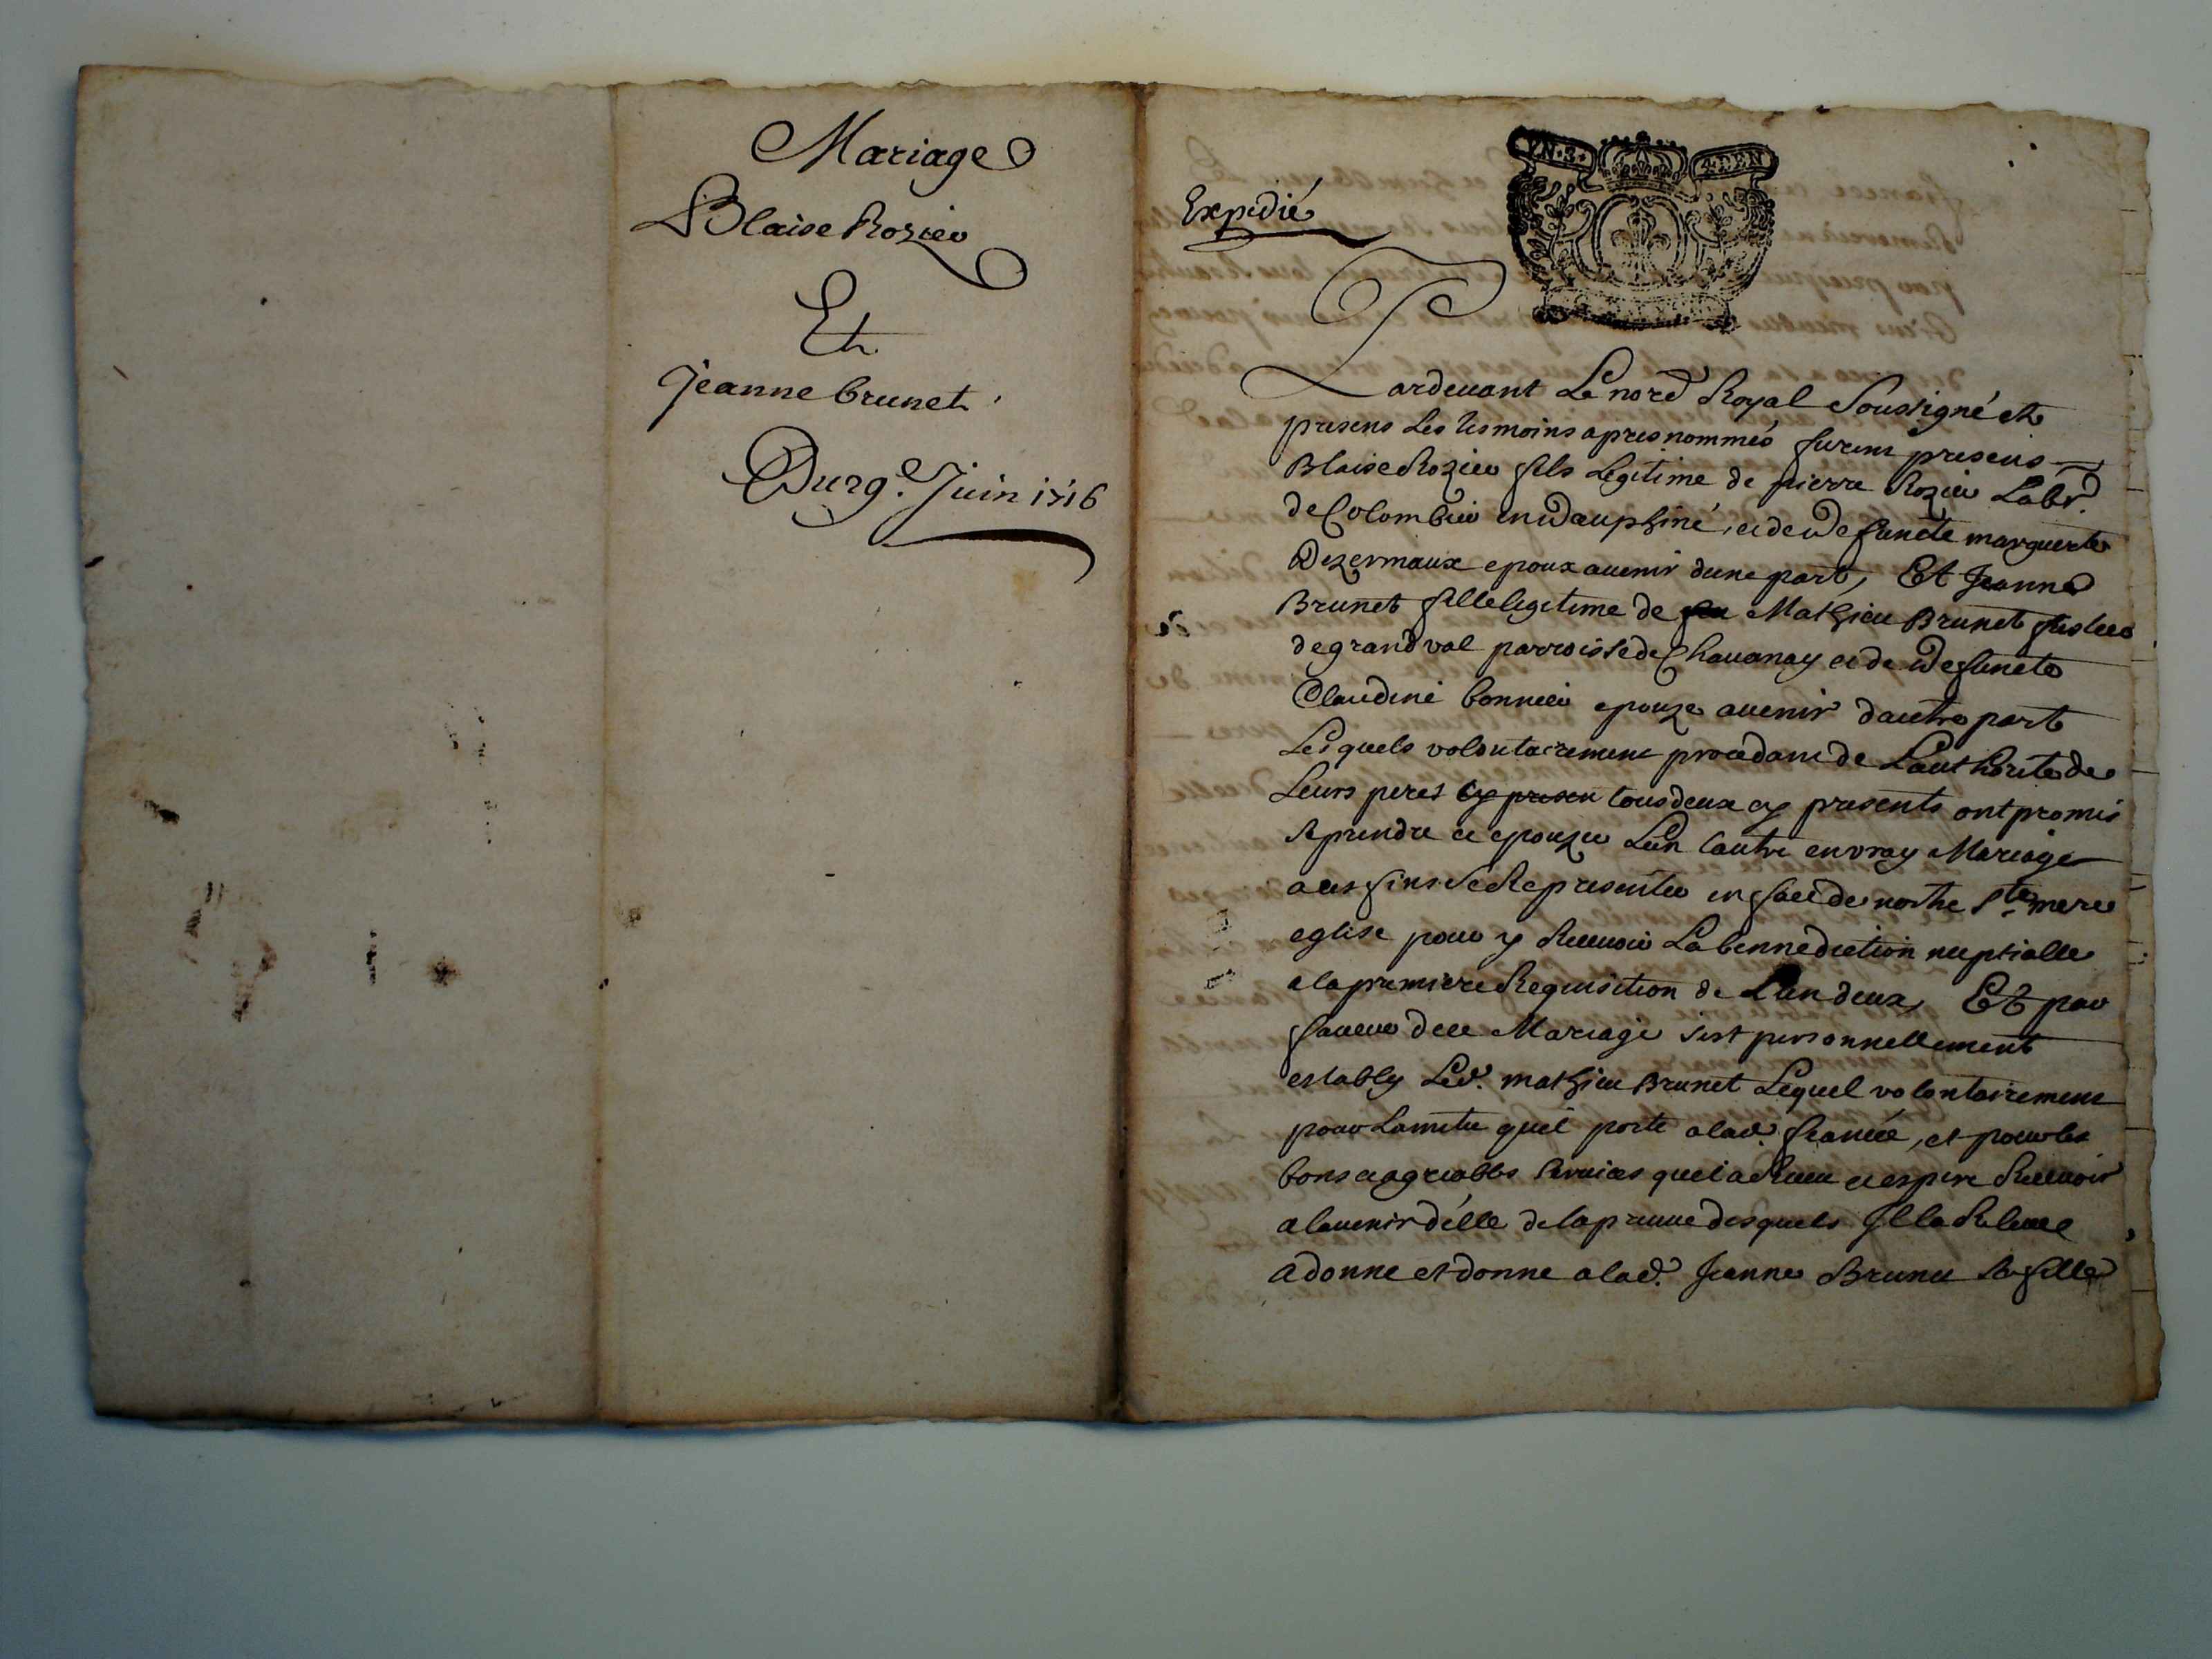 Mariage
Blaise Rozier
Et
Jeanne brunet
Du 29.e Juin 1716
Expedié
VN·3· 4DEN
Pardevant Le nore Royal Soussigné et
presens Les tesmoins apres nommés furent presens
Blaise Rozier fils Legitime de pierre Rozier Labr.
de Colombier en dauphiné, et de deffuncte marguerite
Dezermaux epoux avenir dune part, Et Jeanne
Brunet fille legitime de feu Mathieu Brunet
de grandval parroisse de Chavanay et de deffuncte
Claudine bonnier epouze avenir dautre part
Lesquels volontairement procedant de Lauthorite de
Leurs peres cy presen tous deux cy presents ont promis
se prendre et epouzer Lun lautre en vray Mariage
a ces fins se Representer en face de nostre Ste mere
eglise pour y Recevoir La bennediction nuptialle
a la premiere Requisition de Lun deux, Et par
faveur dece Mariage sest personnellement
estably Led. mathieu Brunet Lequel volontairement
pour Lamitie quil porte a lad. fiancée, et pour les
bons et agreables services quil a Receu et espere Recevoir
a lavenir délle de la preuve desquels Il la Releve
a donne et donne a lad. Jeanne Brunet sa fille